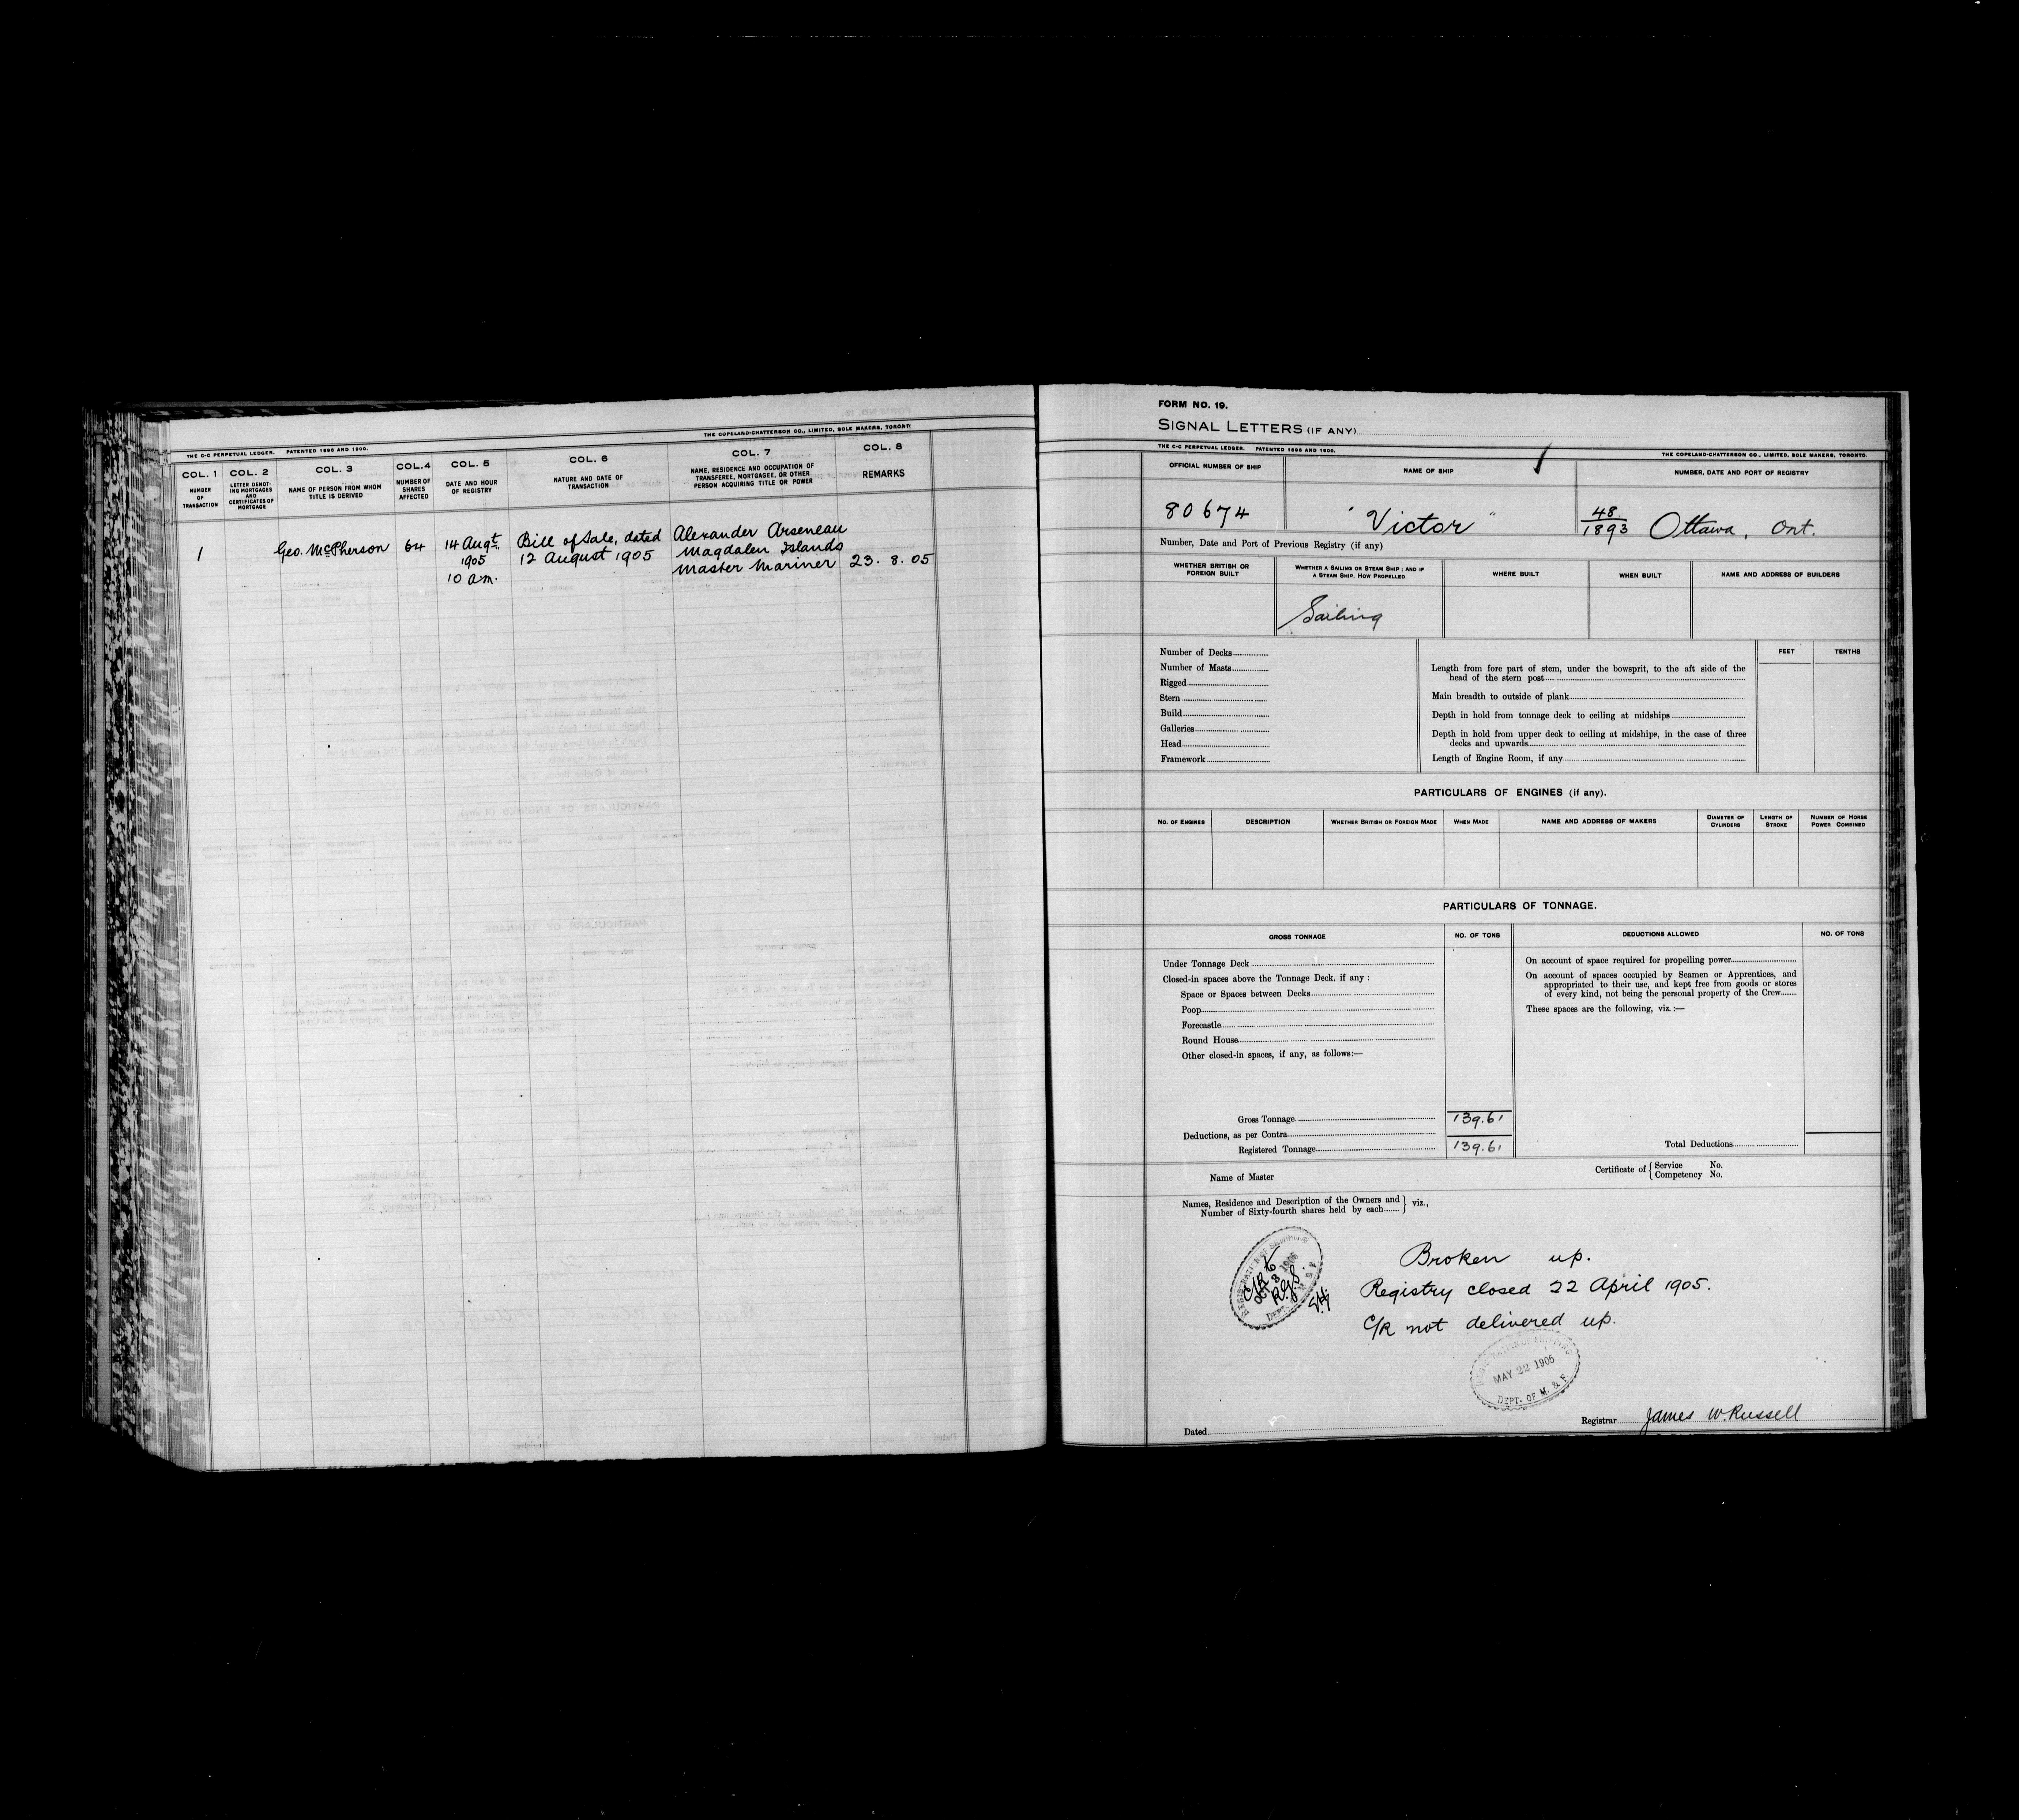 THE C-C PERPETUAL LEDGER. PATENTED 1896 AND 1900. THE COPELAND-CHATTERSON CO., LIMITED, SOLE MAKERS, TORONTO
COL. 1 COL. 2 COL. 3 COL. 4 COL. 5 COL. 6 COL. 7 COL. 8
NUMBER OF TRANSACTION
LETTER DENOTING MORTGAGES AND CERTIFICATES OF MORTGAGE
NAME OF PERSON FROM WHOM TITLE IS DERIVED
NUMBER OF SHARES AFFECTED
DATE AND HOUR OF REGISTRY
NATURE AND DATE OF TRANSACTION
NAME, RESIDENCE AND OCCUPATION OF TRANSFEREE, MORTGAGEE, OR OTHER PERSON ACQUIRING TITLE OR POWER
REMARKS
1 Geo. McPherson 64 14 Augt. Bill of Sale, dated Alexander Arseneau
1905 12 August 1905 Magdalen Islands
10 a.m. Master Mariner 23. 8. 05
FORM NO. 19.
SIGNAL LETTERS (IF ANY)
THE C-C PERPETUAL LEDGER. PATENTED 1896 AND 1900. THE COPELAND-CHATTERSON CO., LIMITED, SOLE MAKERS, TORONTO.
OFFICIAL NUMBER OF SHIP NAME OF SHIP NUMBER, DATE AND PORT OF REGISTRY
80674 "Victor" 48/1893 Ottawa, Ont.
Number, Date and Port of Previous Registry (if any)
WHETHER BRITISH OR FOREIGN BUILT
WHETHER A SAILING OR STEAM SHIP; AND IF A STEAM SHIP, HOW PROPELLED
WHERE BUILT
WHEN BUILT
NAME AND ADDRESS OF BUILDERS
Sailing
FEET TENTHS
Number of Decks
Number of Masts
Rigged
Stern
Build
Galleries
Head
Framework
Length from fore part of stem, under the bowsprit, to the aft side of the
head of the stern post
Main breadth to outside of plank
Depth in hold from tonnage deck to ceiling at midships
Depth in hold from upper deck to ceiling at midships, in the case of three
decks and upwards
Length of Engine Room, if any
PARTICULARS OF ENGINES (if any).
No. of Engines DESCRIPTION Whether British or Foreign Made When Made NAME AND ADDRESS OF MAKERS Diameter of Cylinders Length of Stroke Number of Horse Power Combined
PARTICULARS OF TONNAGE.
GROSS TONNAGE NO. OF TONS DEDUCTIONS ALLOWED NO. OF TONS
Under Tonnage Deck
Closed-in spaces above the Tonnage Deck, if any :
Space or Spaces between Decks
Poop
Forecastle
Round House
Other closed-in spaces, if any, as follows:—
On account of space required for propelling power
On account of spaces occupied by Seamen or Apprentices, and
appropriated to their use, and kept free from goods or stores
of every kind, not being the personal property of the Crew
These spaces are the following, viz.:—
Gross Tonnage 139.61
Deductions, as per Contra
Registered Tonnage 139.61
Total Deductions
Name of Master
Certificate of { Service No.
Competency No.
Names, Residence and Description of the Owners and
Number of Sixty-fourth shares held by each } viz.,
Broken up.
Registry closed 22 April 1905.
C/R not delivered up.
MAY 22 1905
DEPT. OF M. & F.
Dated
Registrar James W. Russell